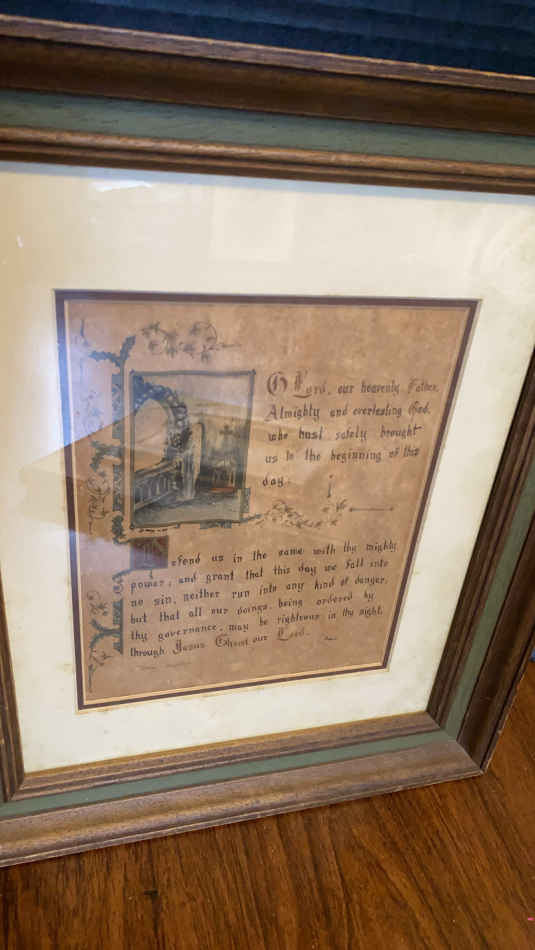 O Lord, our heavenly Father,
Almighty and everlasting God,
who hast safely brought
us to the beginning of this
day;
Defend us in the same with thy mighty
power; and grant that this day we fall into
no sin, neither run into any kind of danger,
but that all our doings being ordered by
thy governance, may be righteous in thy sight,
through Jesus Christ our Lord.